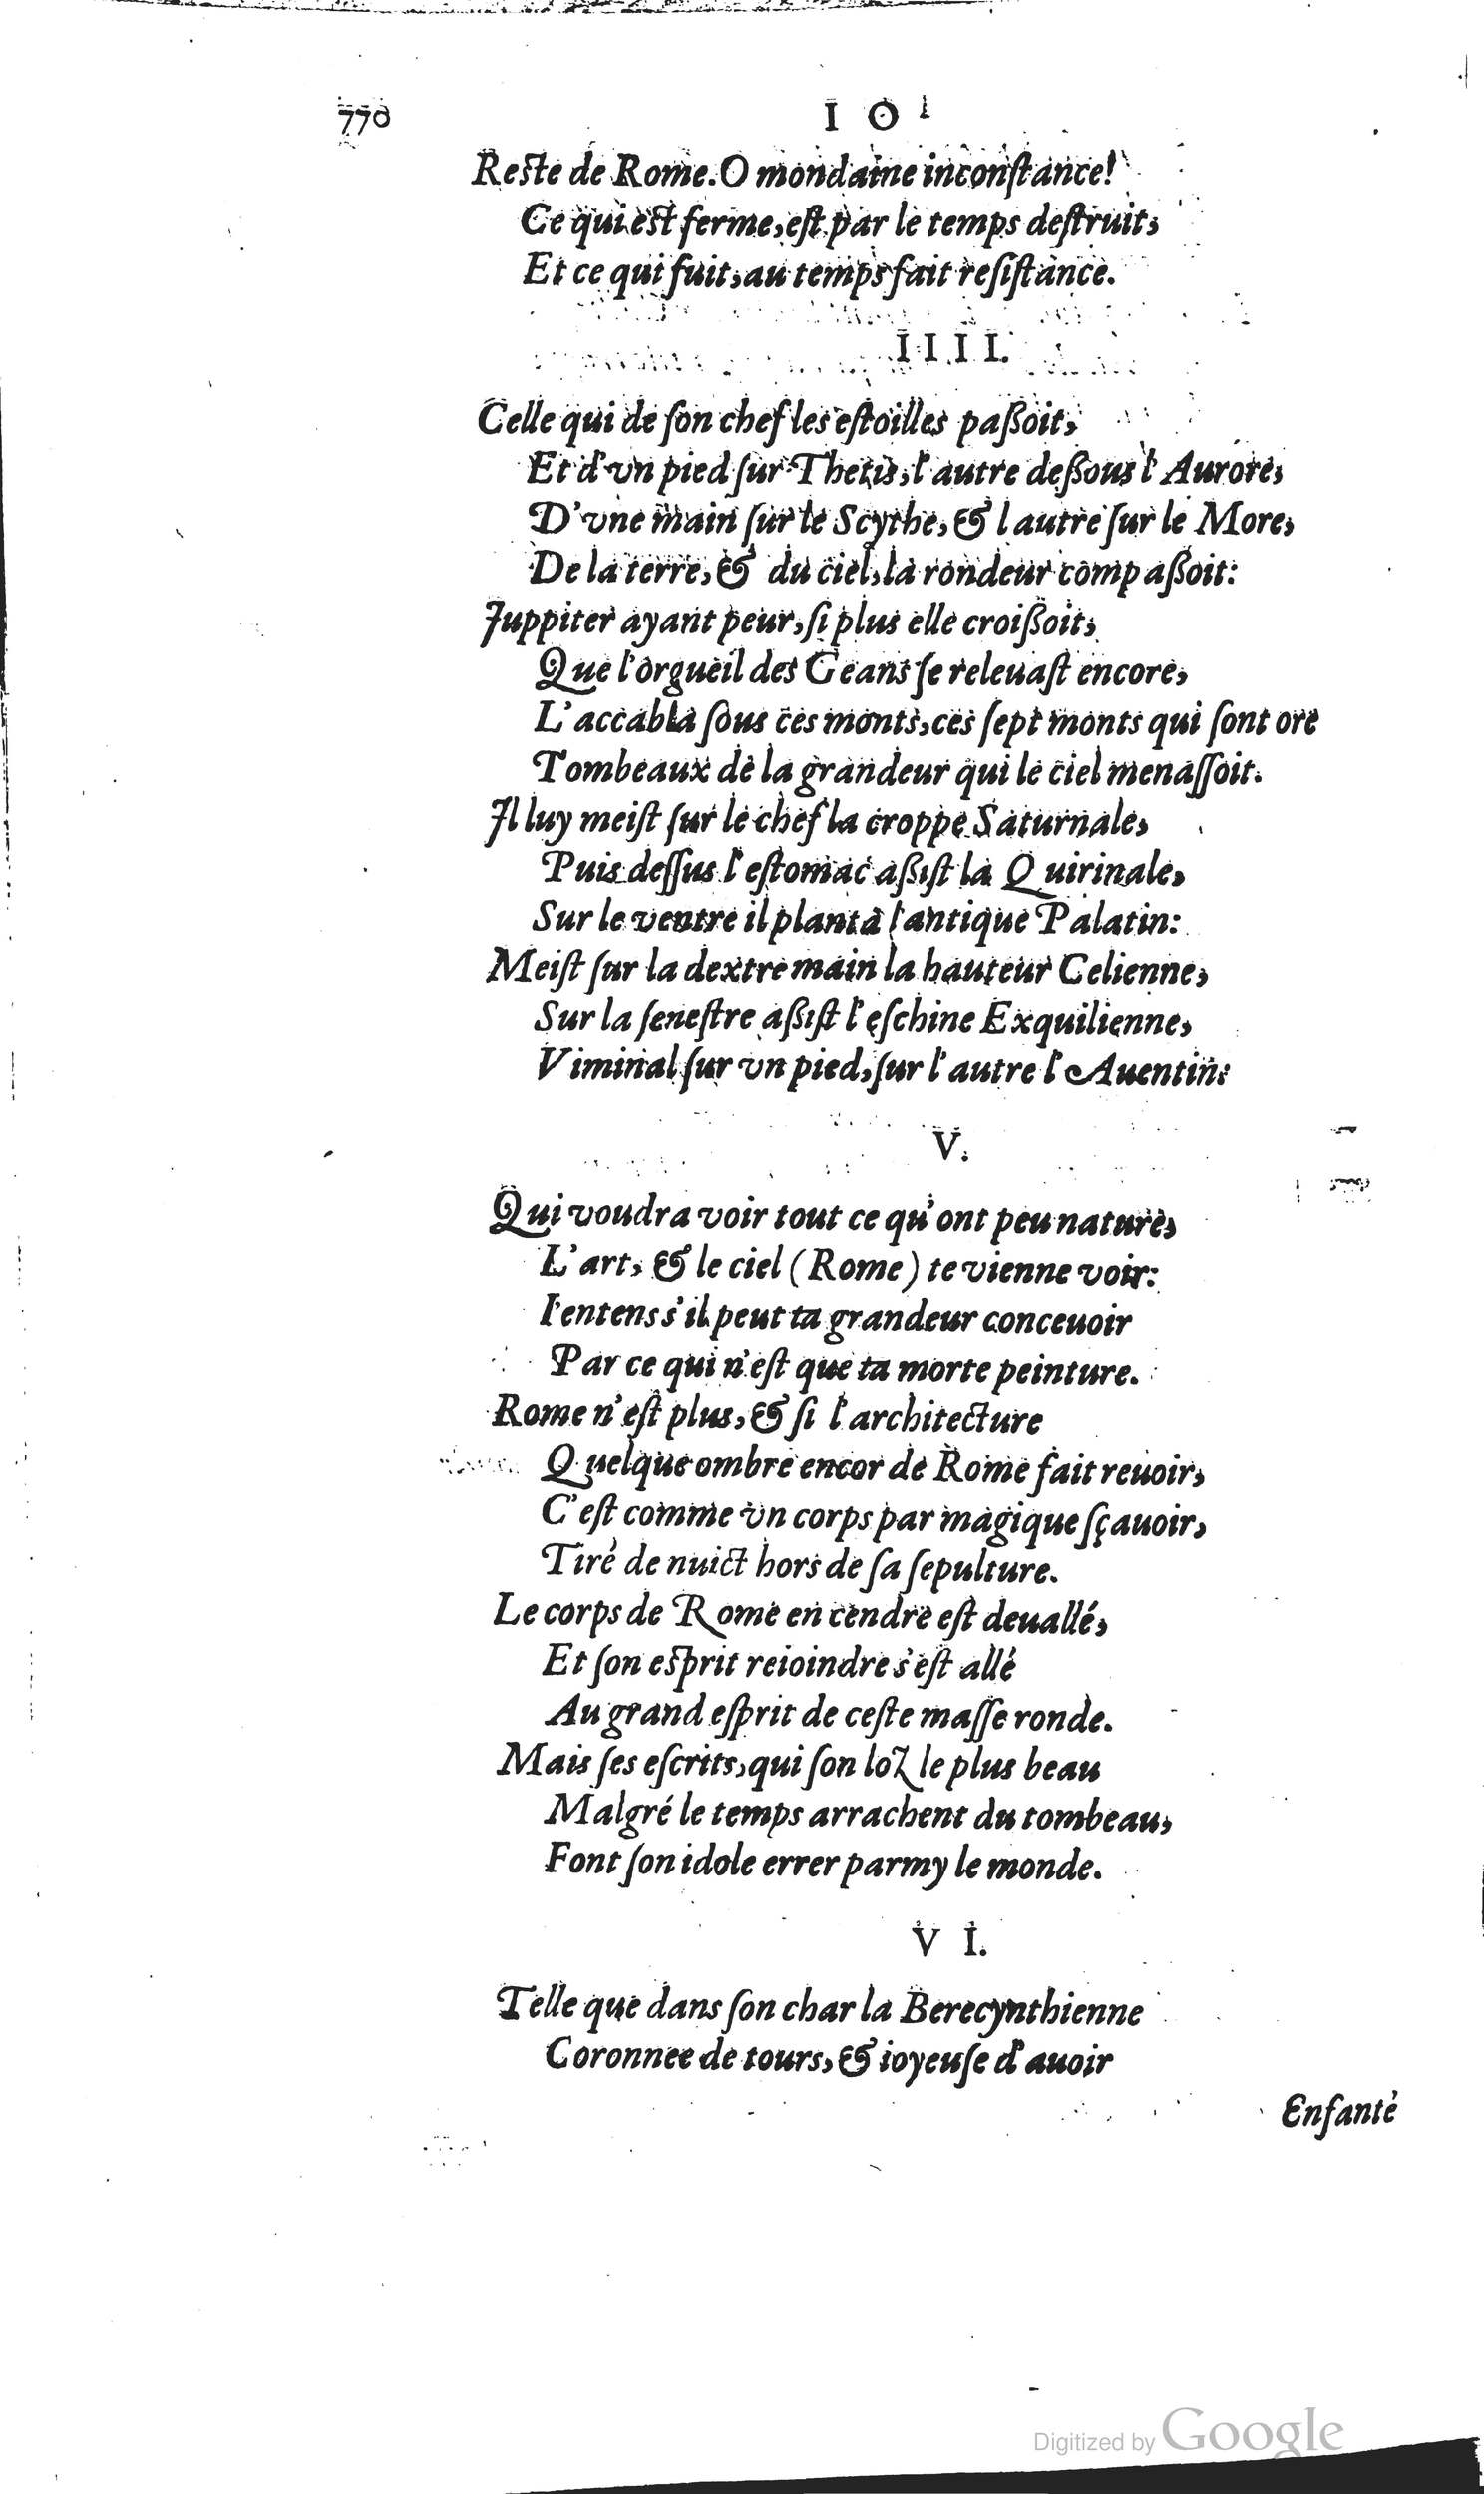 770
I O
Reste de Rome. O mondaine inconſtance!
Ce qui eſt ferme, eſt par le temps deſtruit,
Et ce qui fuit, au temps fait reſiſtance.
IIII.
Celle qui de ſon chef les eſtoilles paßoit,
Et d'vn pied ſur Thetis, l'autre deßous l'Aurore,
D'vne main ſur le Scythe, & l'autre ſur le More,
De la terre, & du ciel, la rondeur compaßoit:
Juppiter ayant peur, ſi plus elle croißoit,
Que l'orgueil des Geans ſe releuaſt encore,
L'accabla ſous ces monts, ces ſept monts qui ſont ore
Tombeaux de la grandeur qui le ciel menaſſoit.
Il luy meiſt ſur le chef la croppe Saturnale,
Puis deſſus l'eſtomac aßiſt la Quirinale,
Sur le ventre il planta l'antique Palatin:
Meiſt ſur la dextre main la hauteur Celienne,
Sur la ſeneſtre aßiſt l'eſchine Exquilienne,
Viminal ſur vn pied, ſur l'autre l'Auentin:
V.
Qui voudra voir tout ce qu'ont peu nature,
L'art, & le ciel (Rome) te vienne voir:
I'entens s'il peut ta grandeur conceuoir
Par ce qui n'eſt que ta morte peinture.
Rome n'eſt plus, & ſi l'architecture
Quelque ombre encor de Rome fait reuoir,
C'eſt comme vn corps par magique ſçauoir,
Tiré de nuict hors de ſa ſepulture.
Le corps de Rome en cendre eſt deuallé,
Et ſon eſprit reioindre s'eſt allé
Au grand eſprit de ceſte maſſe ronde.
Mais ſes eſcrits, qui ſon loz le plus beau
Malgré le temps arrachent du tombeau,
Font ſon idole errer parmy le monde.
V I.
Telle que dans ſon char la Berecynthienne
Coronnee de tours, & ioyeuſe d'auoir
Enfanté
Digitized by Google